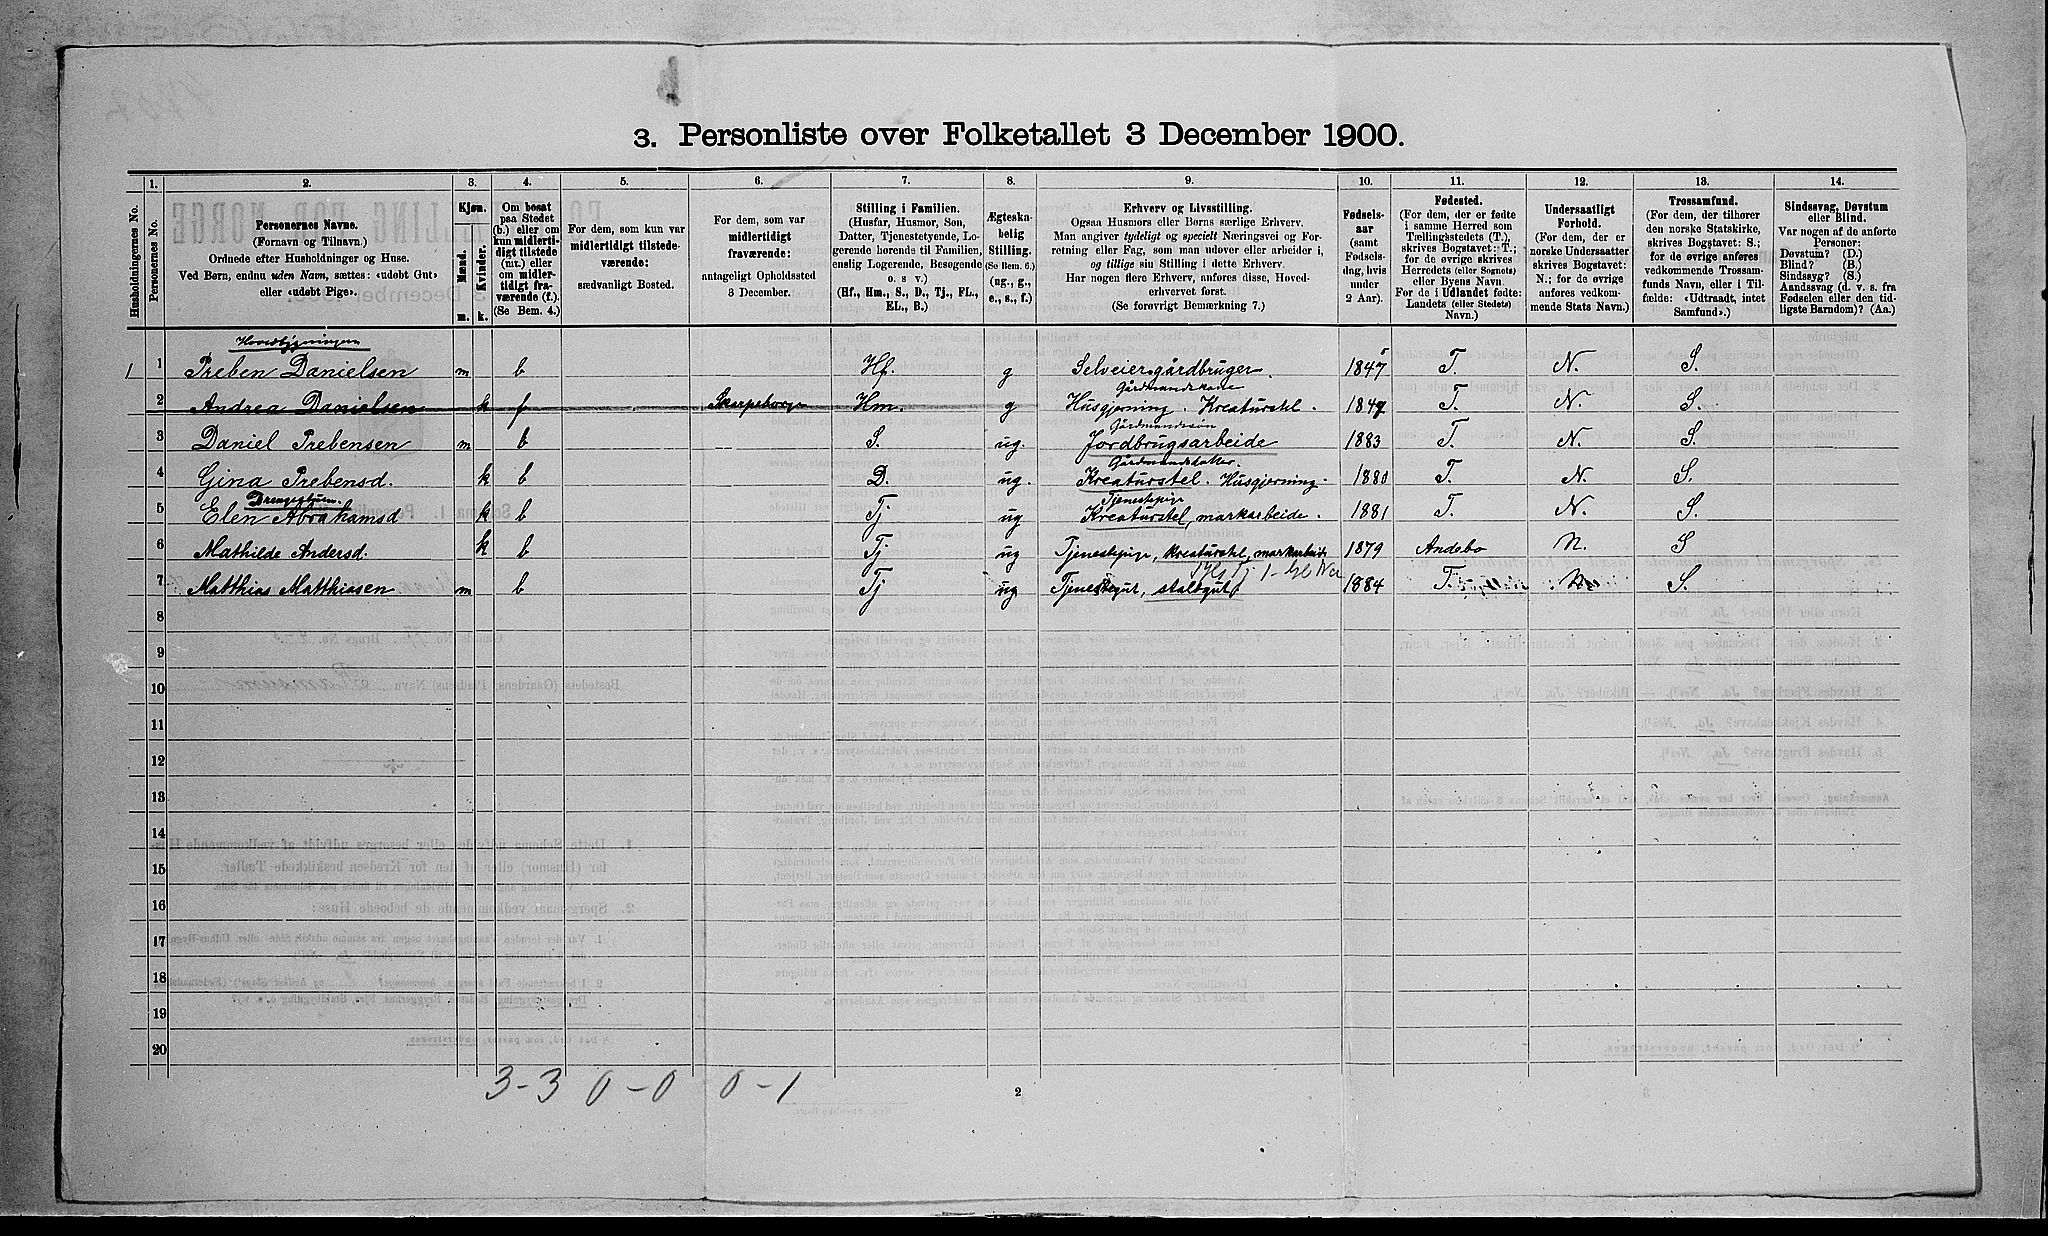 3. Personliste over Folketallet 3 December 1900.
Husholdningernes No.
1.
Personernes No.
2.
Personernes Navne.
(Fornavn og Tilnavn.)
Ordnede efter Husholdninger og Huse.
Ved Børn, endnu uden Navn, sættes: «udøbt Gut»
eller «udøbt Pige».
3.
Kjøn.
Mænd.
Kvinder.
m.
k.
4.
Om bosat
paa Stedet
(b.) eller om
kun midlerti-
digt tilstede
(mt.) eller
om midler-
tidigt fra-
værende (f.).
(Se Bem. 4.)
5.
For dem, som kun var
midlertidigt tilstede-
værende:
sædvanligt Bosted.
6.
For dem, som var
midlertidigt
fraværende:
antageligt Opholdssted
3 December.
7.
Stilling i Familien.
(Husfar, Husmor, Søn,
Datter, Tjenestetyende, Lo-
gerende hørende til Familien,
enslig Logerende, Besøgende
o. s. v.)
(Hf., Hm., S., D., Tj., FL.,
EL., B.)
8.
Ægteska-
belig
Stilling.
(Se Bem. 6.)
(ug., g.,
e., s., f.)
9.
Erhverv og Livsstilling.
Ogsaa Husmors eller Børns særlige Erhverv.
Man angiver tydeligt og specielt Næringsvei og For-
retning eller Fag, som man udøver eller arbeider i,
og tillige sin Stilling i dette Erhverv.
Har nogen flere Erhverv, anføres disse, Hoved-
erhvervet først.
(Se forøvrigt Bemærkning 7.)
10.
Fødsels-
aar
(samt
Fødsels-
dag, hvis
under
2 Aar).
11.
Fødested.
(For dem, der er fødte
i samme Herred som
Tællingsstedets (T.),
skrives Bogstavet: T.;
for de øvrige skrives
Herredets (eller Sognets)
eller Byens Navn.
For de i Udlandet fødte:
Landets (eller Stedets)
Navn.)
12.
Undersaatligt
Forhold.
(For dem, der er
norske Undersaatter
skrives Bogstavet:
N.; for de øvrige
anføres vedkom-
mende Stats Navn.)
13.
Trossamfund.
(For dem, der tilhører
den norske Statskirke,
skrives Bogstavet: S.;
for de øvrige anføres
vedkommende Trossam-
funds Navn, eller i Til-
fælde: «Udtraadt, intet
Samfund».)
14.
Sindssvag, Døvstum
eller Blind.
Var nogen af de anførte
Personer:
Døvstum? (D.)
Blind? (B.)
Sindssyg? (S.)
Aandssvag (d. v. s. fra
Fødselen eller den tid-
ligste Barndom)? (Aa.)
Hovedbygningen
1 1 Preben Danielsen m b Hf. g Selveier gårdbruger. 1847 T. N. S.
Gårdmandskone
2 Andrea Danielsen k f Skarpeborge Hm. g Husgjerning. Kreaturstel. 1847 T. N. S.
Gårdmandssøn
3 Daniel Prebensen m b S. ug. Jordbrugsarbeide 1883 T. N. S.
Gårdmandsdatter.
4 Gina Prebensd. k b D. ug. Kreaturstel. Husgjerning. 1880 T. N. S.
Drengestuen. Tjenestepige
5 Elen Abrahamsd k b Tj ug Kreaturstel, markarbeide. 1881 T. N. S.
6 Mathilde Andersd. k b Tj ug Tjenestepige, kreaturstel, markarbeide 1879 Andebo N. S
7 Matthias Matthiasen m b Tj ug Tjenestegut, staldgut. 1884 T. N. S.
8
9
10
11
12
13
14
15
16
17
18
19
20
3-3 0-0 0-1
2